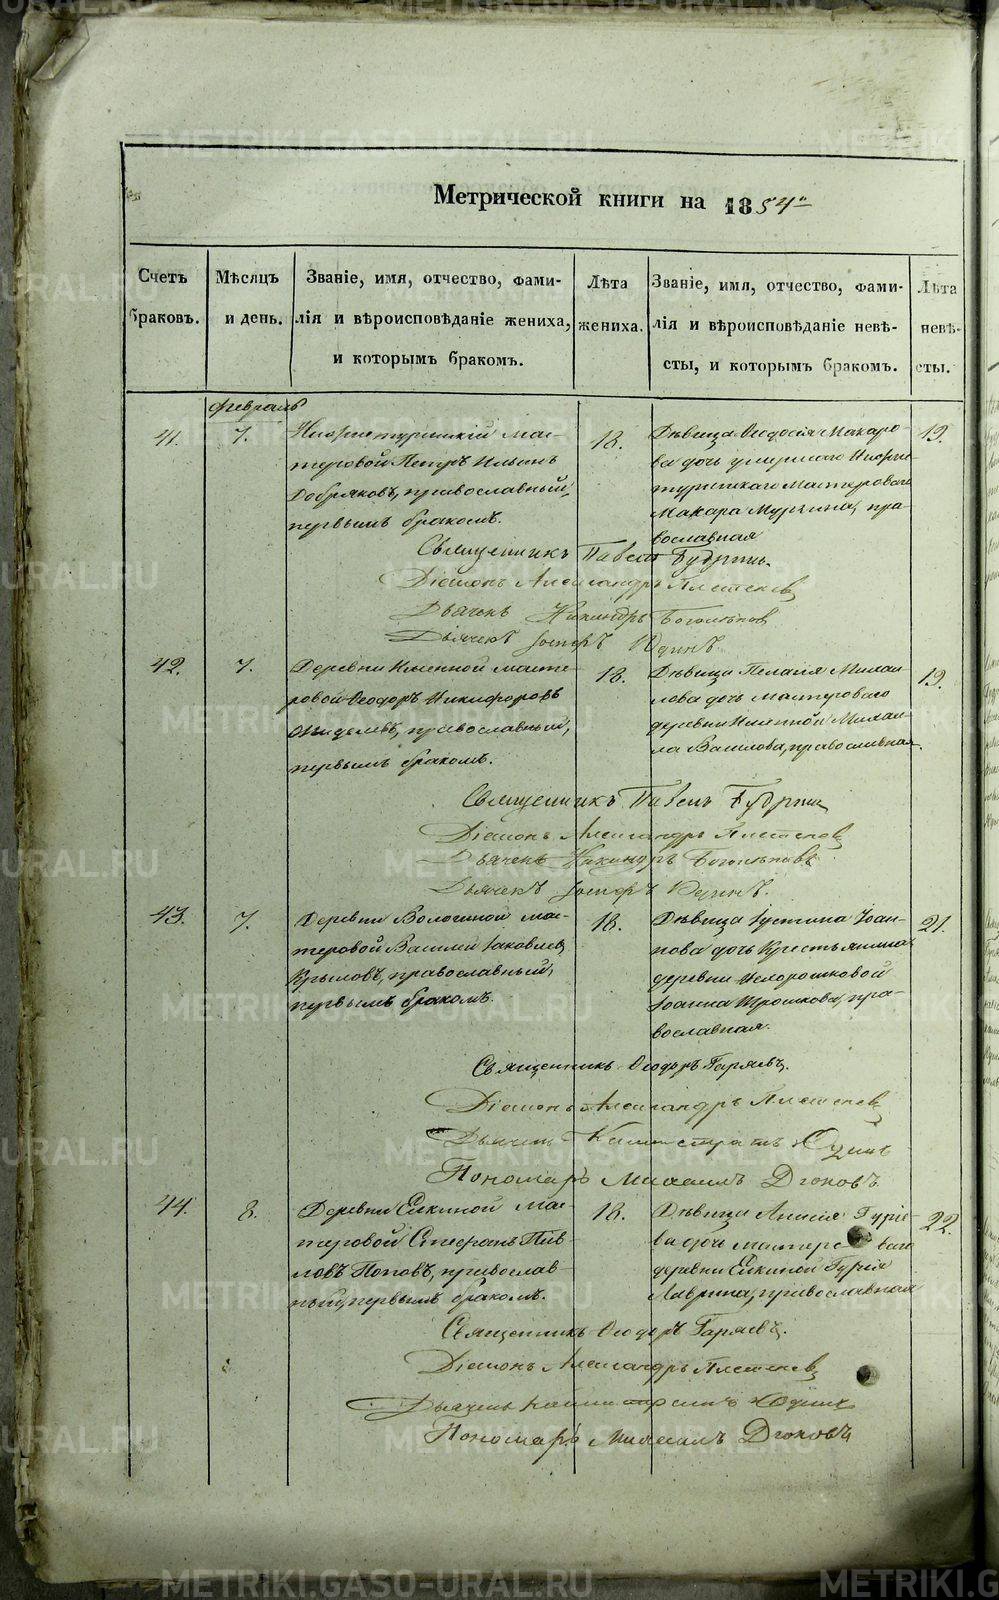 Метрической книги на 1854
Счетъ браковъ.
Мѣсяцъ и день.
Званіе, имя, отчество, фами-
лія и вѣроисповѣданіе жениха,
и которымъ бракомъ.
Лѣта жениха.
Званіе, имя, отчество, фами-
лія и вѣроисповѣданіе невѣ-
сты, и которымъ бракомъ.
Лѣта невѣ-
сты.
Февраль
41.
7.
Нижнетуринскій мас-
теровой Петръ Ильинъ
Добряковъ, православный,
первымъ бракомъ.
18.
Дѣвица Ѳеодосія Макаро-
ва дочь умершаго Нижне-
туринскаго мастероваго
Макара Мурзина, пра-
вославная
19.
Священникъ Павелъ Будринъ.
Діаконъ Александръ Плетеневъ
Дьячекъ Никандръ Боголѣповъ
Дьячекъ Юдинъ.
42.
7.
Деревни Именной масте-
ровой Ѳеодоръ Никифоровъ
православный,
первымъ бракомъ.
18.
Дѣвица Пелагія Михаи-
лова дочь мастероваго
деревни Именной Михаи-
ла Вашлова, православная.
19.
Священникъ Павелъ Будринъ
Діаконъ Александръ Плетеневъ
Дьячекъ Никандръ Боголѣповъ
Дьячекъ Юдинъ.
43.
7.
Деревни Вологиной мас-
теровой Василій Іаковлевъ
Крыловъ, православный,
первымъ бракомъ.
18.
Дѣвица Іустина Іоан-
нова дочь крестьянина
деревни
Іоанна Трошкова, пра-
вославная.
21.
Священникъ Ѳеодоръ Гаряевъ.
Діаконъ Александръ Плетеневъ
Дьячекъ Калистратъ Юдинъ
Пономарь Михаилъ Дягоновъ.
44.
8.
Деревни Елкиной мас-
теровой Стефанъ Пав-
ловъ Поповъ, православ-
ный, первымъ бракомъ.
18.
Дѣвица Анисія Гуріе-
ва дочь мастероваго
деревни Елкиной Гурія
Лаврина, православная
22.
Священникъ Ѳеодоръ Гаряевъ.
Діаконъ Александръ Плетеневъ
Дьячекъ Калистратъ Юдинъ
Пономарь Михаилъ Дягоновъ
METRIKI.GASO-URAL.RU